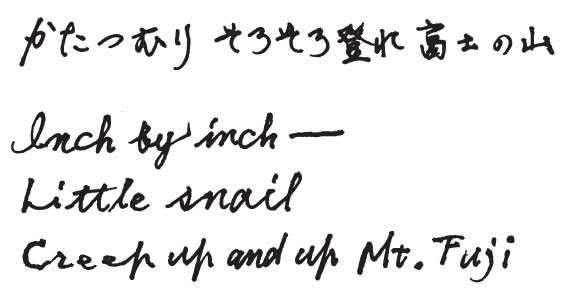 かたつむり そろそろ登れ 富士の山
Inch by inch —
Little snail
Creep up and up Mt. Fuji